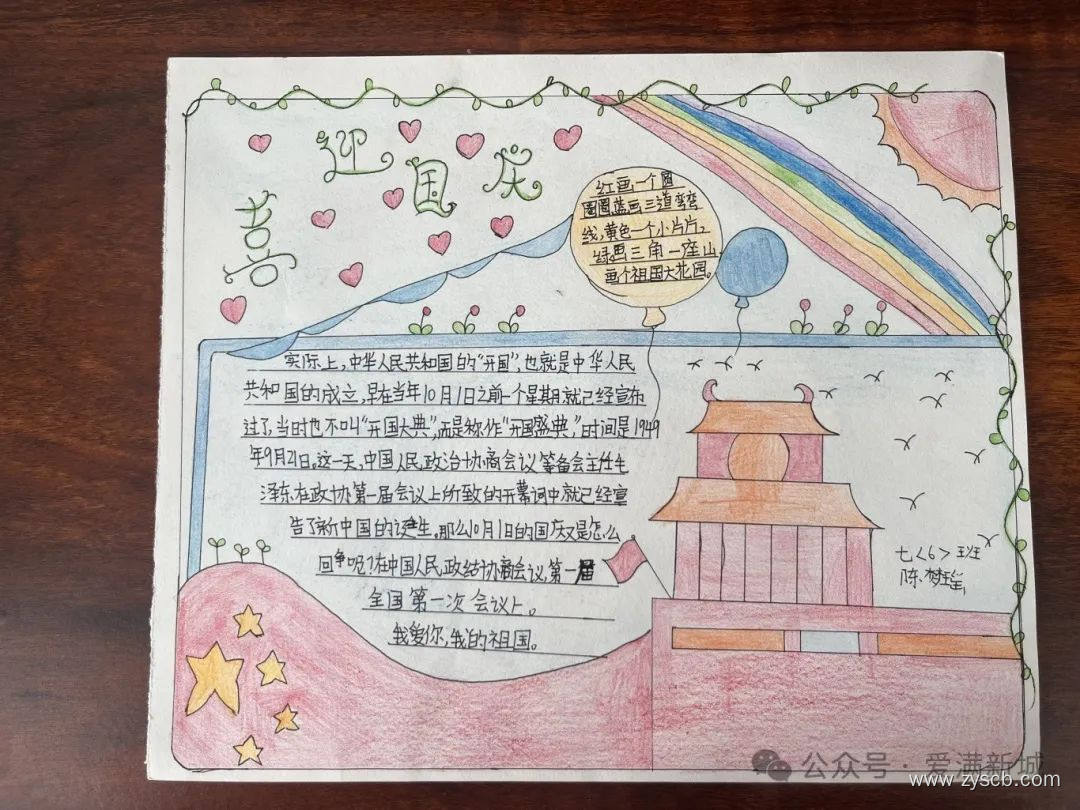 喜迎国庆
红画一个圆
圈圈蓝画三道弯弯
线,黄色一个小片片,
绿画三角一座山,
画个祖国大花园。
实际上,中华人民共和国的“开国”,也就是中华人民
共和国的成立,早在当年10月1日之前一个星期就已经宣布
过了,当时也不叫“开国大典”,而是称作“开国盛典,”时间是1949
年9月21日,这一天,中国人民政治协商会议筹备会主任毛
泽东在政协第一届会议上所致的开幕词中就已经宣
告了新中国的诞生。那么10月1日的国庆又是怎么
回争呢?在中国人民政结协商会议,第一届
全国第一次会议上。
我爱你,我的祖国。
七<6>班
陈梦
公众号·爱满新城
www.zyscb.com